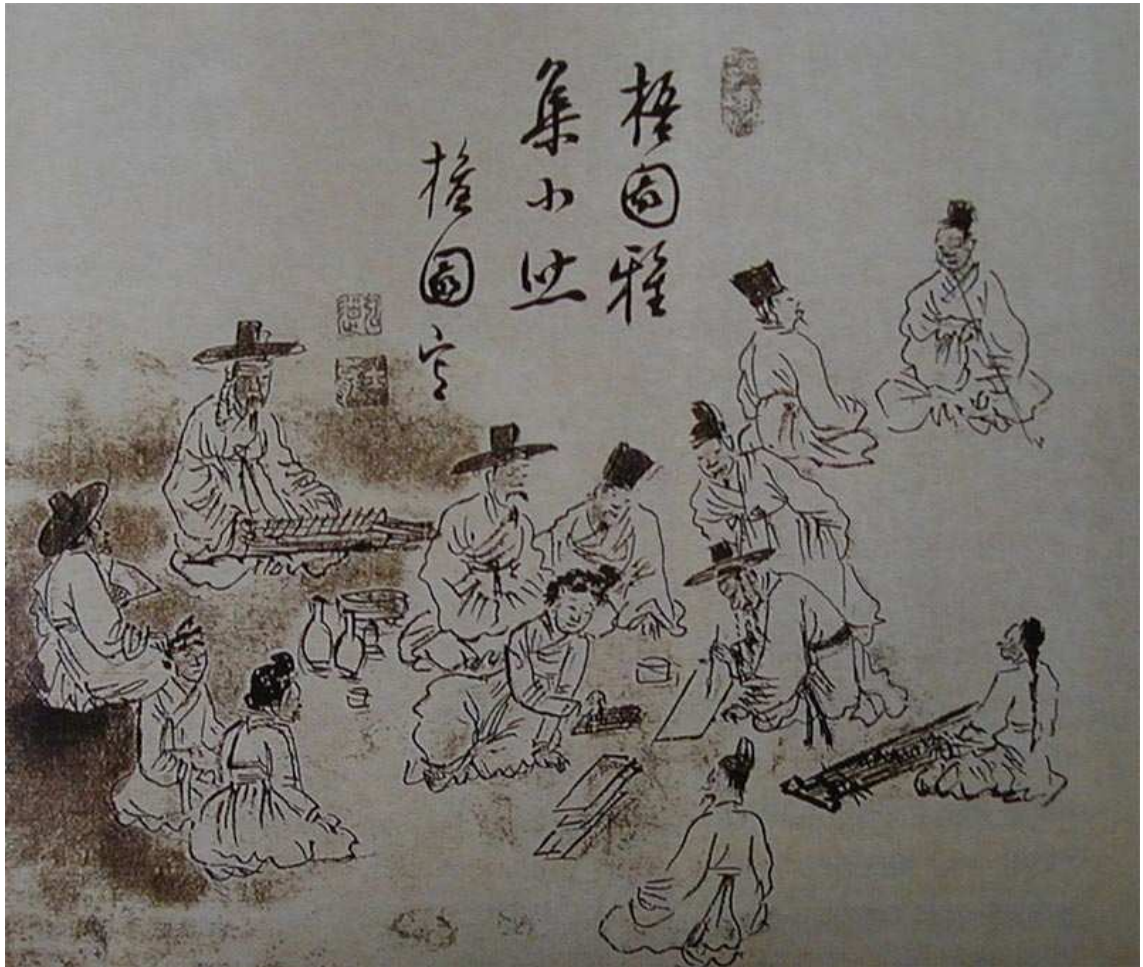 梧園雅
集小照
檀園寫